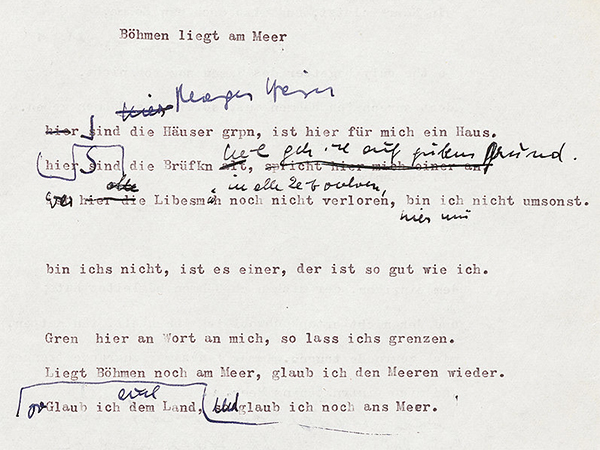 Böhmen liegt am Meer
hier
hier sind die Häuser grpn, ist hier für mich ein Haus.
hier sind die Brüfkn alt, spricht hier mich einer an
geh ich auf gutem Grund.
alle in alle Zeit verloren,
hier die Libesmüh noch nicht verloren, bin ich nicht umsonst.
hier
bin ichs nicht, ist es einer, der ist so gut wie ich.
Gren hier an Wort an mich, so lass ichs grenzen.
Liegt Böhmen noch am Meer, glaub ich den Meeren wieder.
Glaub ich dem Land, glaub ich noch ans Meer.